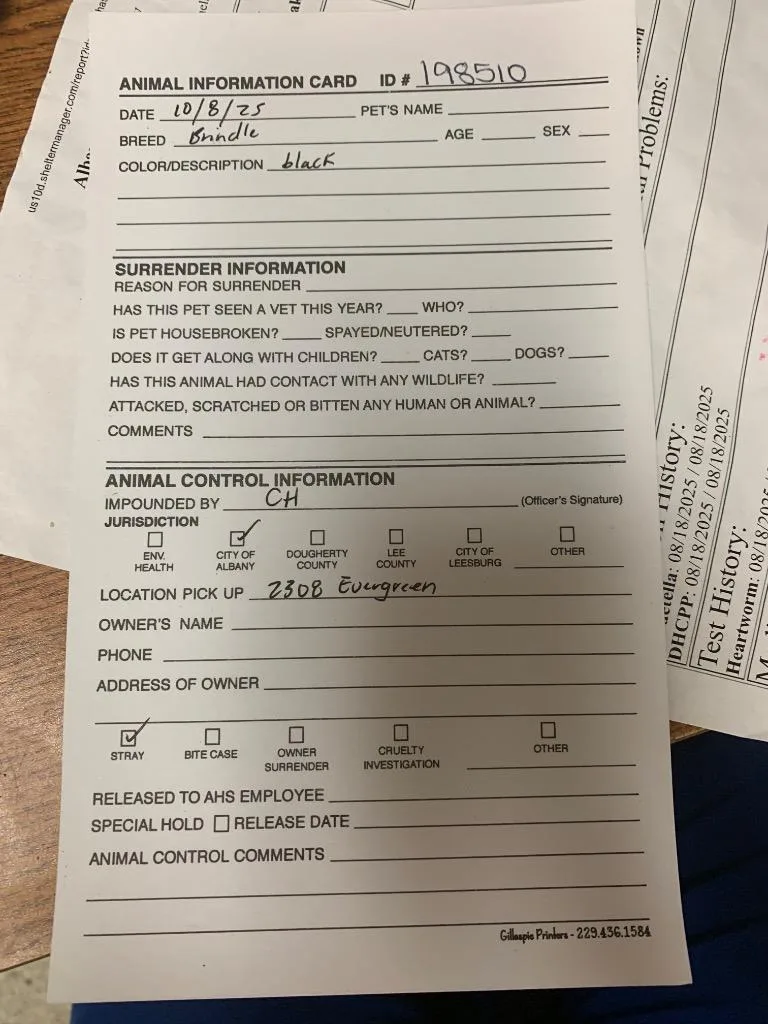 ANIMAL INFORMATION CARD ID # 198510
DATE 10/8/25 PET'S NAME
BREED Brindle AGE SEX
COLOR/DESCRIPTION black
SURRENDER INFORMATION
REASON FOR SURRENDER
HAS THIS PET SEEN A VET THIS YEAR? WHO?
IS PET HOUSEBROKEN? SPAYED/NEUTERED?
DOES IT GET ALONG WITH CHILDREN? CATS? DOGS?
HAS THIS ANIMAL HAD CONTACT WITH ANY WILDLIFE?
ATTACKED, SCRATCHED OR BITTEN ANY HUMAN OR ANIMAL?
COMMENTS
ANIMAL CONTROL INFORMATION
IMPOUNDED BY CH (Officer's Signature)
JURISDICTION
ENV. HEALTH CITY OF ALBANY DOUGHERTY COUNTY LEE COUNTY CITY OF LEESBURG OTHER
LOCATION PICK UP 2308 Evergreen
OWNER'S NAME
PHONE
ADDRESS OF OWNER
STRAY BITE CASE OWNER SURRENDER CRUELTY INVESTIGATION OTHER
RELEASED TO AHS EMPLOYEE
SPECIAL HOLD RELEASE DATE
ANIMAL CONTROL COMMENTS
Gillespie Printers - 229.436.1584
us10d.sheltermanager.com/report?id
Problems:
History:
08/18/2025 / 08/18/2025
DHCPP: 08/18/2025 / 08/18/2025
Test History:
Heartworm: 08/18/2025